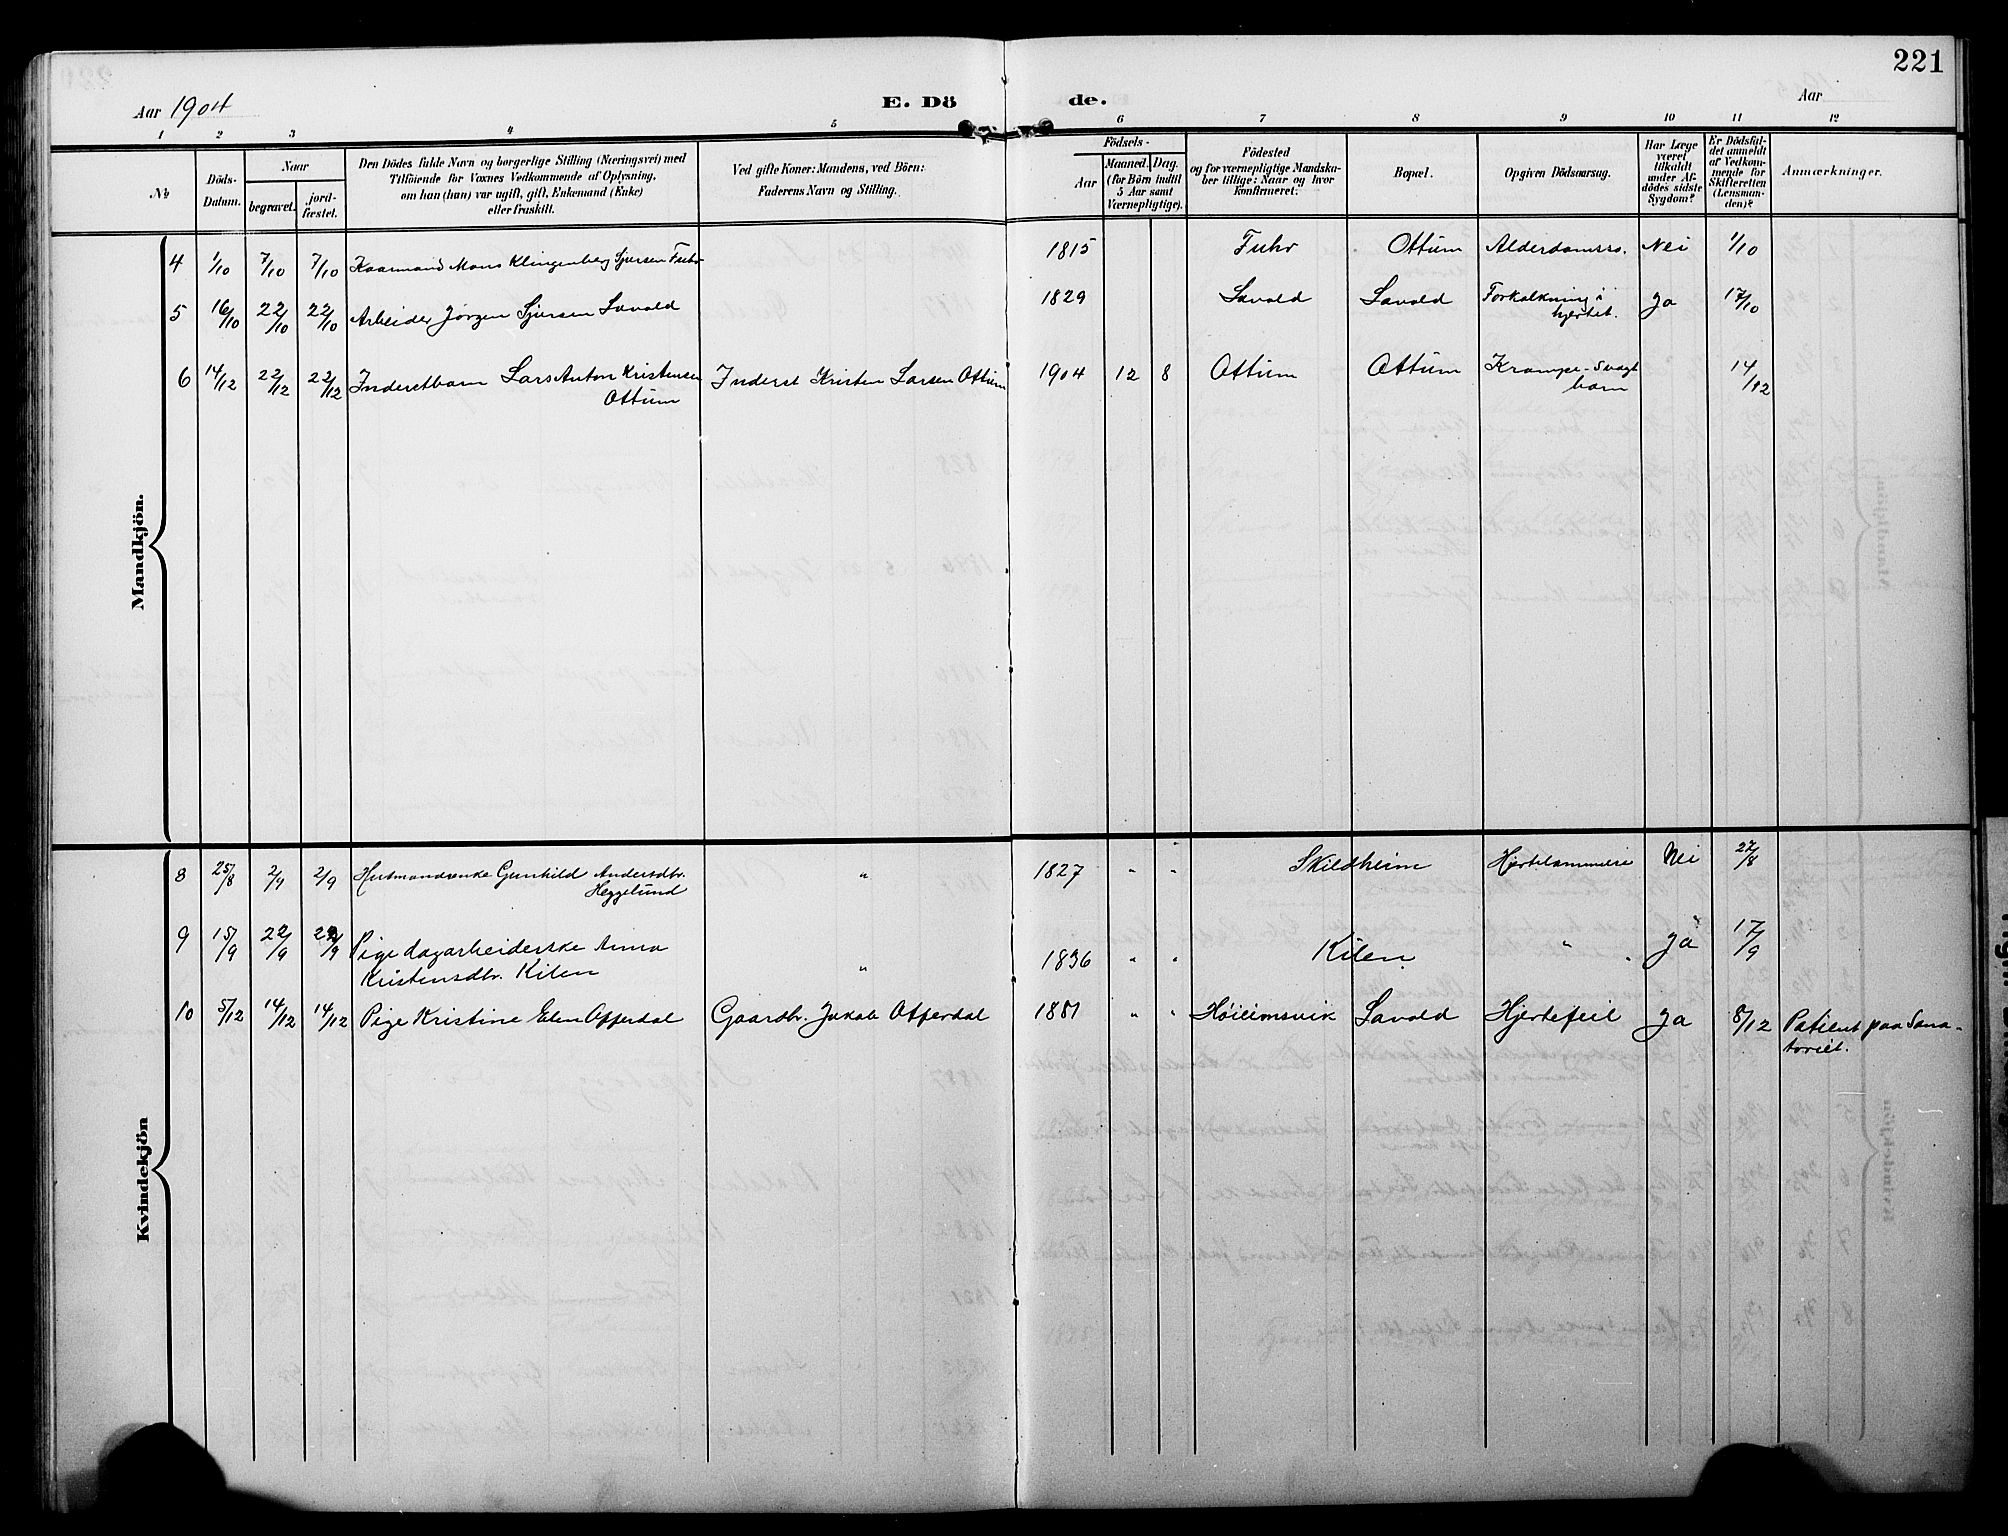 221
Aar 1904
E. Dö de.
Aar
1 2 3 4 5 6 7 8 9 10 11 12
No
Döds-Datum.
Naar
begravet.
jord-fæstet.
Den Dödes fulde Navn og borgerlige Stilling (Næringsvei) med
Tilföiende for Voxnes Vedkommende af Oplysning,
om han (hun) var ugift, gift, Enkemand (Enke)
eller fraskilt.
Ved gifte Koner: Mandens, ved Börn:
Faderens Navn og Stilling.
Födsels-
Aar
Maaned.
Dag.
(for Börn indtil
5 Aar samt
Værnepligtige).
Födested
og for værnepligtige Mandska-
ber tillige: Naar og hvor
konfirmeret.
Bopæl.
Opgiven Dödsaarsag.
Har Læge
været
tilkaldt
under Af-
dödes sidste
Sygdom?
Er Dödsfal-
det anmeldt
af Vedkom-
mende for
Skifteretten
(Lensman-
den)?
Anmærkninger.
Mandkjön.
4 1/10 7/10 7/10 Kaarmand Mons Klingenberg Sjursen Fuhr 1815 Fuhr Ottum Alderdomssv. Nei 1/10
5 16/10 22/10 22/10 Arbeider Jørgen Sjursen Lavold 1829 Lavold Lavold Forkalkning i
hjertet. Ja 17/10
6 14/12 22/12 22/12 Inderstbarn Lars Anton Kristensen
Ottum Inderst Kristen Larsen Ottum 1904 12 8 Ottum Ottum Krampe-Svagt
barn 14/12
Kvindekjön
8 25/8 2/9 2/9 Husmandsenke Gunhild Andersdtr.
Heggelund " 1827 " " Skildheim Nei 27/8
9 15/9 22/9 22/9 Pige dagarbeiderske Anna
Kristensdtr. Kilen " 1836 " " Kilen " Ja 17/9
10 5/12 14/12 14/12 Pige Kristine Elen Offerdal Gaardbr. Jakob Offerdal 1881 " " Høieimsvik Lavold Hjertefeil Ja 8/12 Patient paa Sana-
toriet.